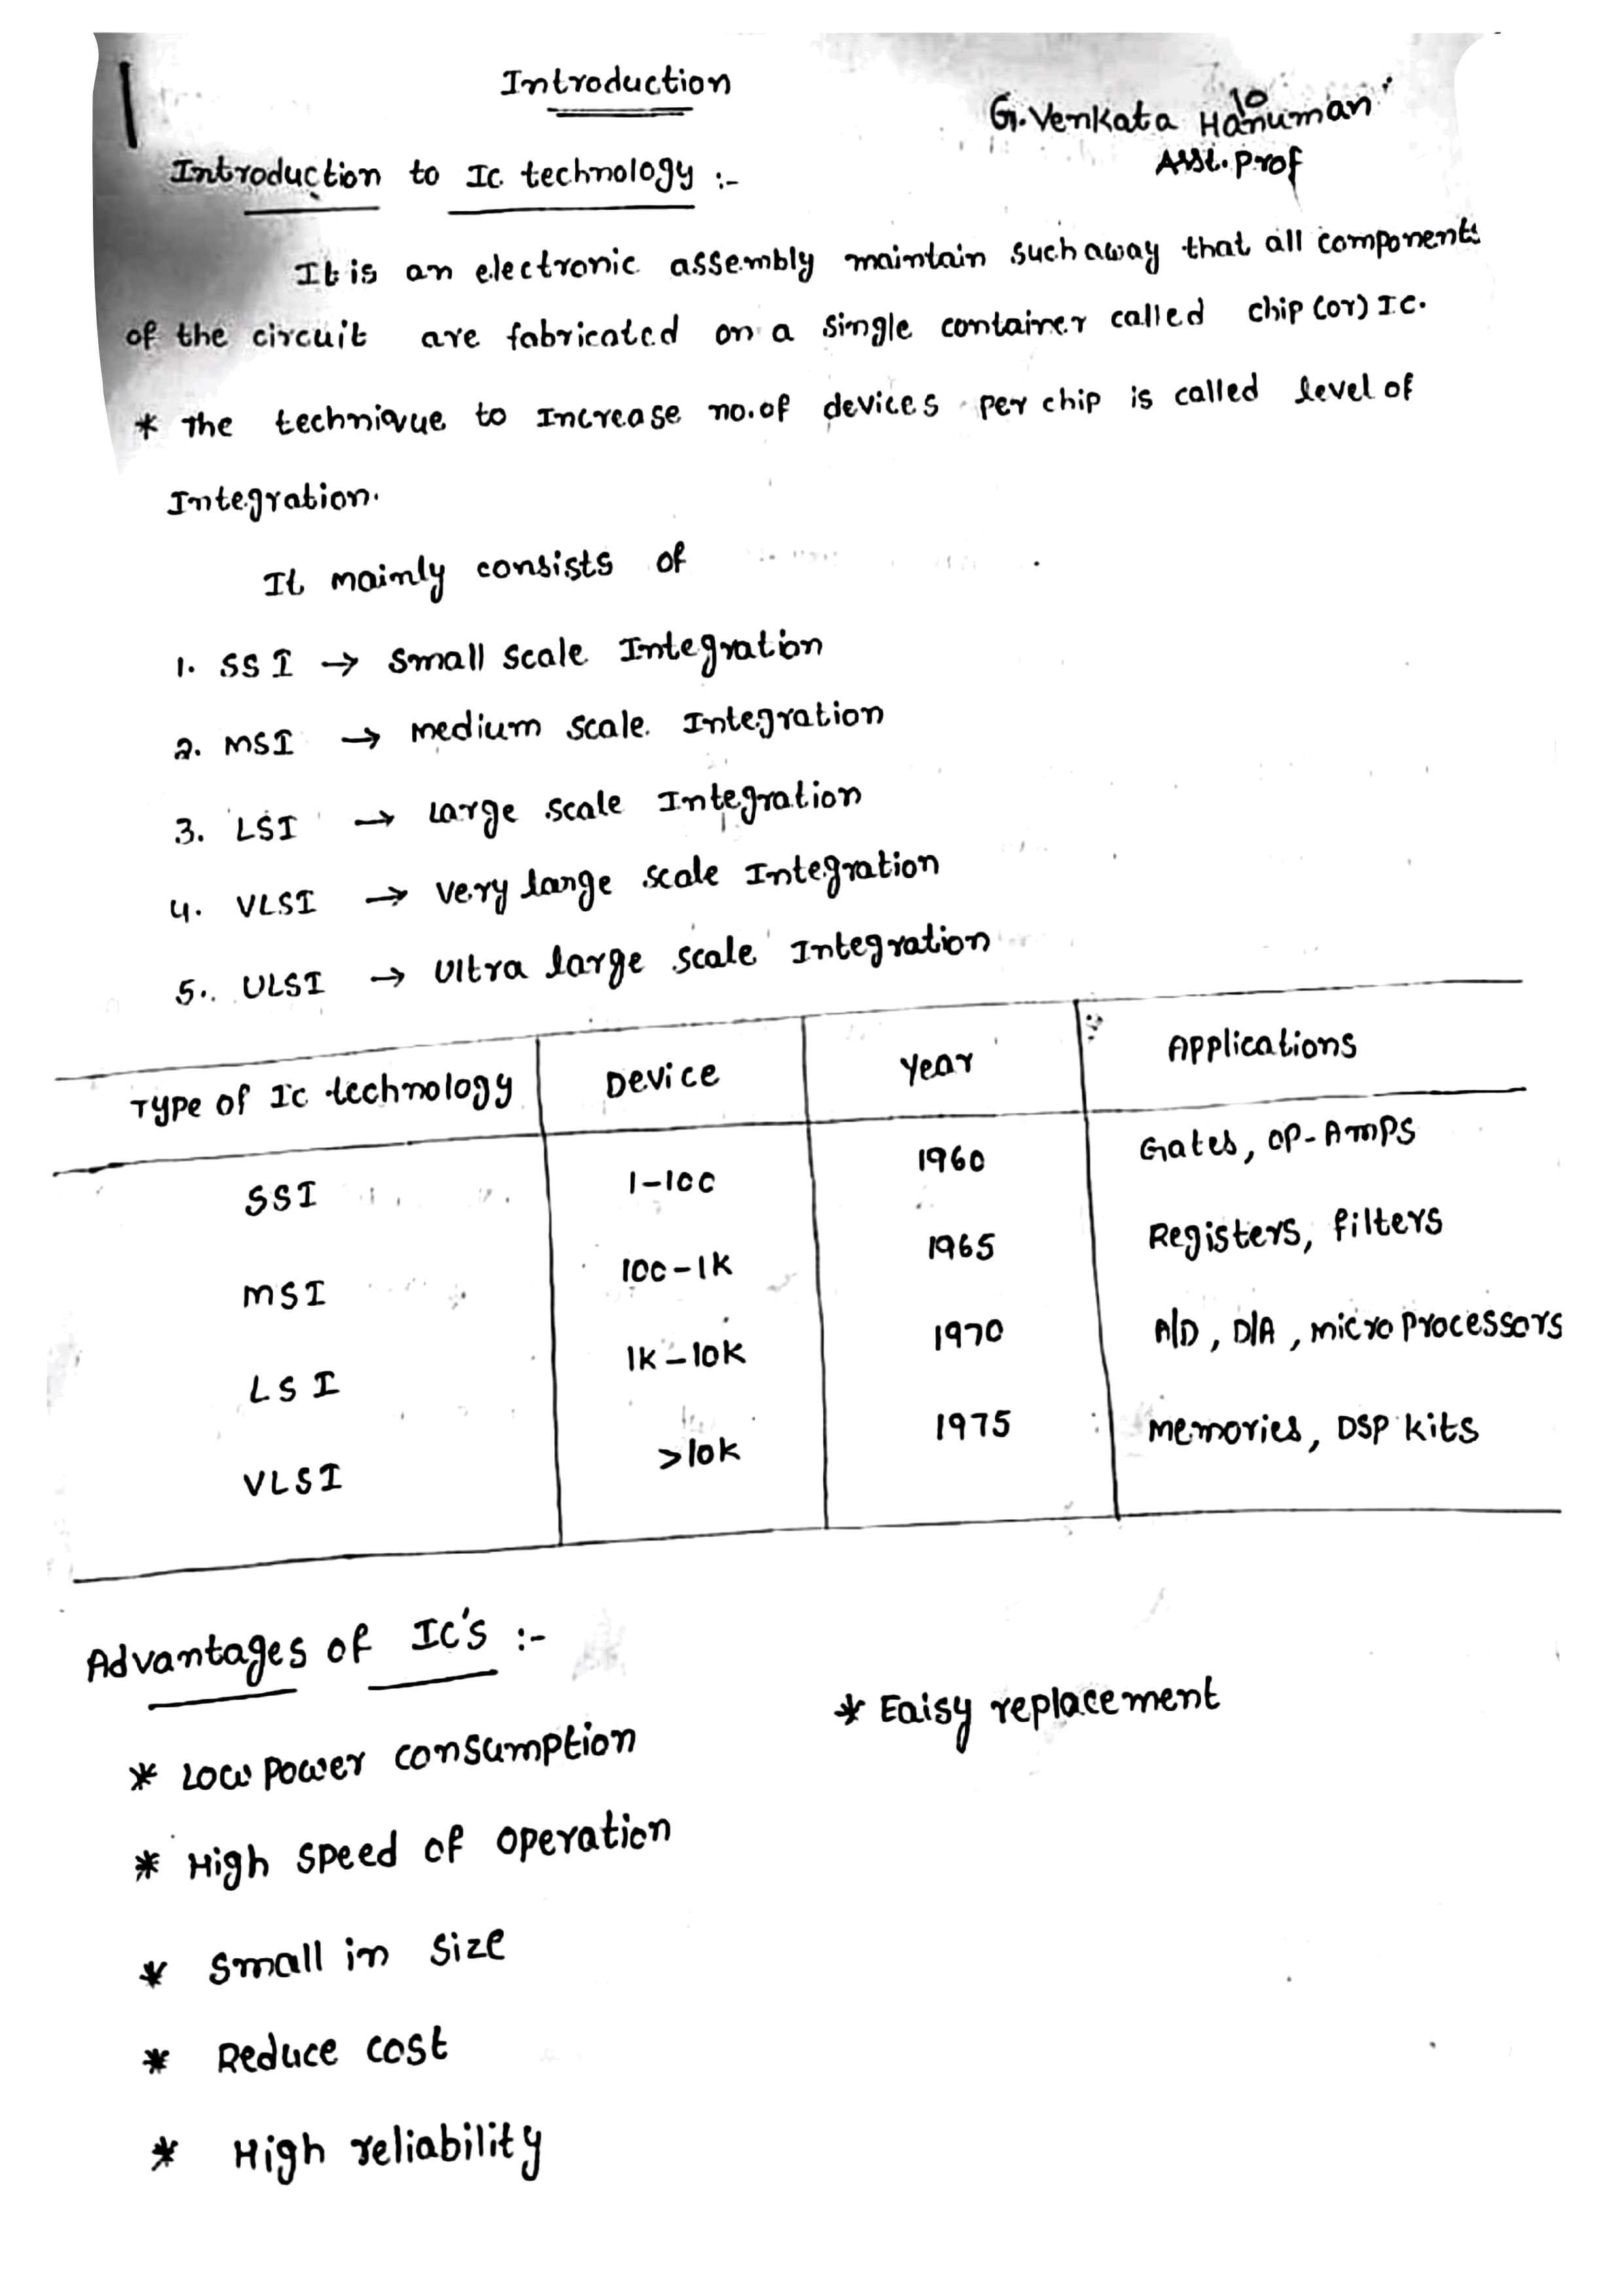 Introduction
10
G. Venkata Hanuman
Asst. Prof
Introduction to Ic technology :-
It is an electronic assembly maintain such away that all components
of the circuit are fabricated on a single container called chip (or) I.C.
* The technique to Increase no. of devices per chip is called level of
Integration.
It mainly consists of
1. SSI → Small scale Integration
2. MSI → Medium scale Integration
3. LSI → Large scale Integration
4. VLSI → Very large scale Integration
5. ULSI → Ultra large scale Integration
Type of Ic technology Device Year Applications
SSI 1-100 1960 Gates, OP-AMPS
MSI 100-1K 1965 Registers, filters
LSI 1K-10K 1970 A/D, D/A, micro processors
VLSI >10K 1975 Memories, DSP kits
Advantages of IC's :-
* Low power consumption
* High speed of operation
* Small in size
* Reduce cost
* High reliability
* Eaisy replacement